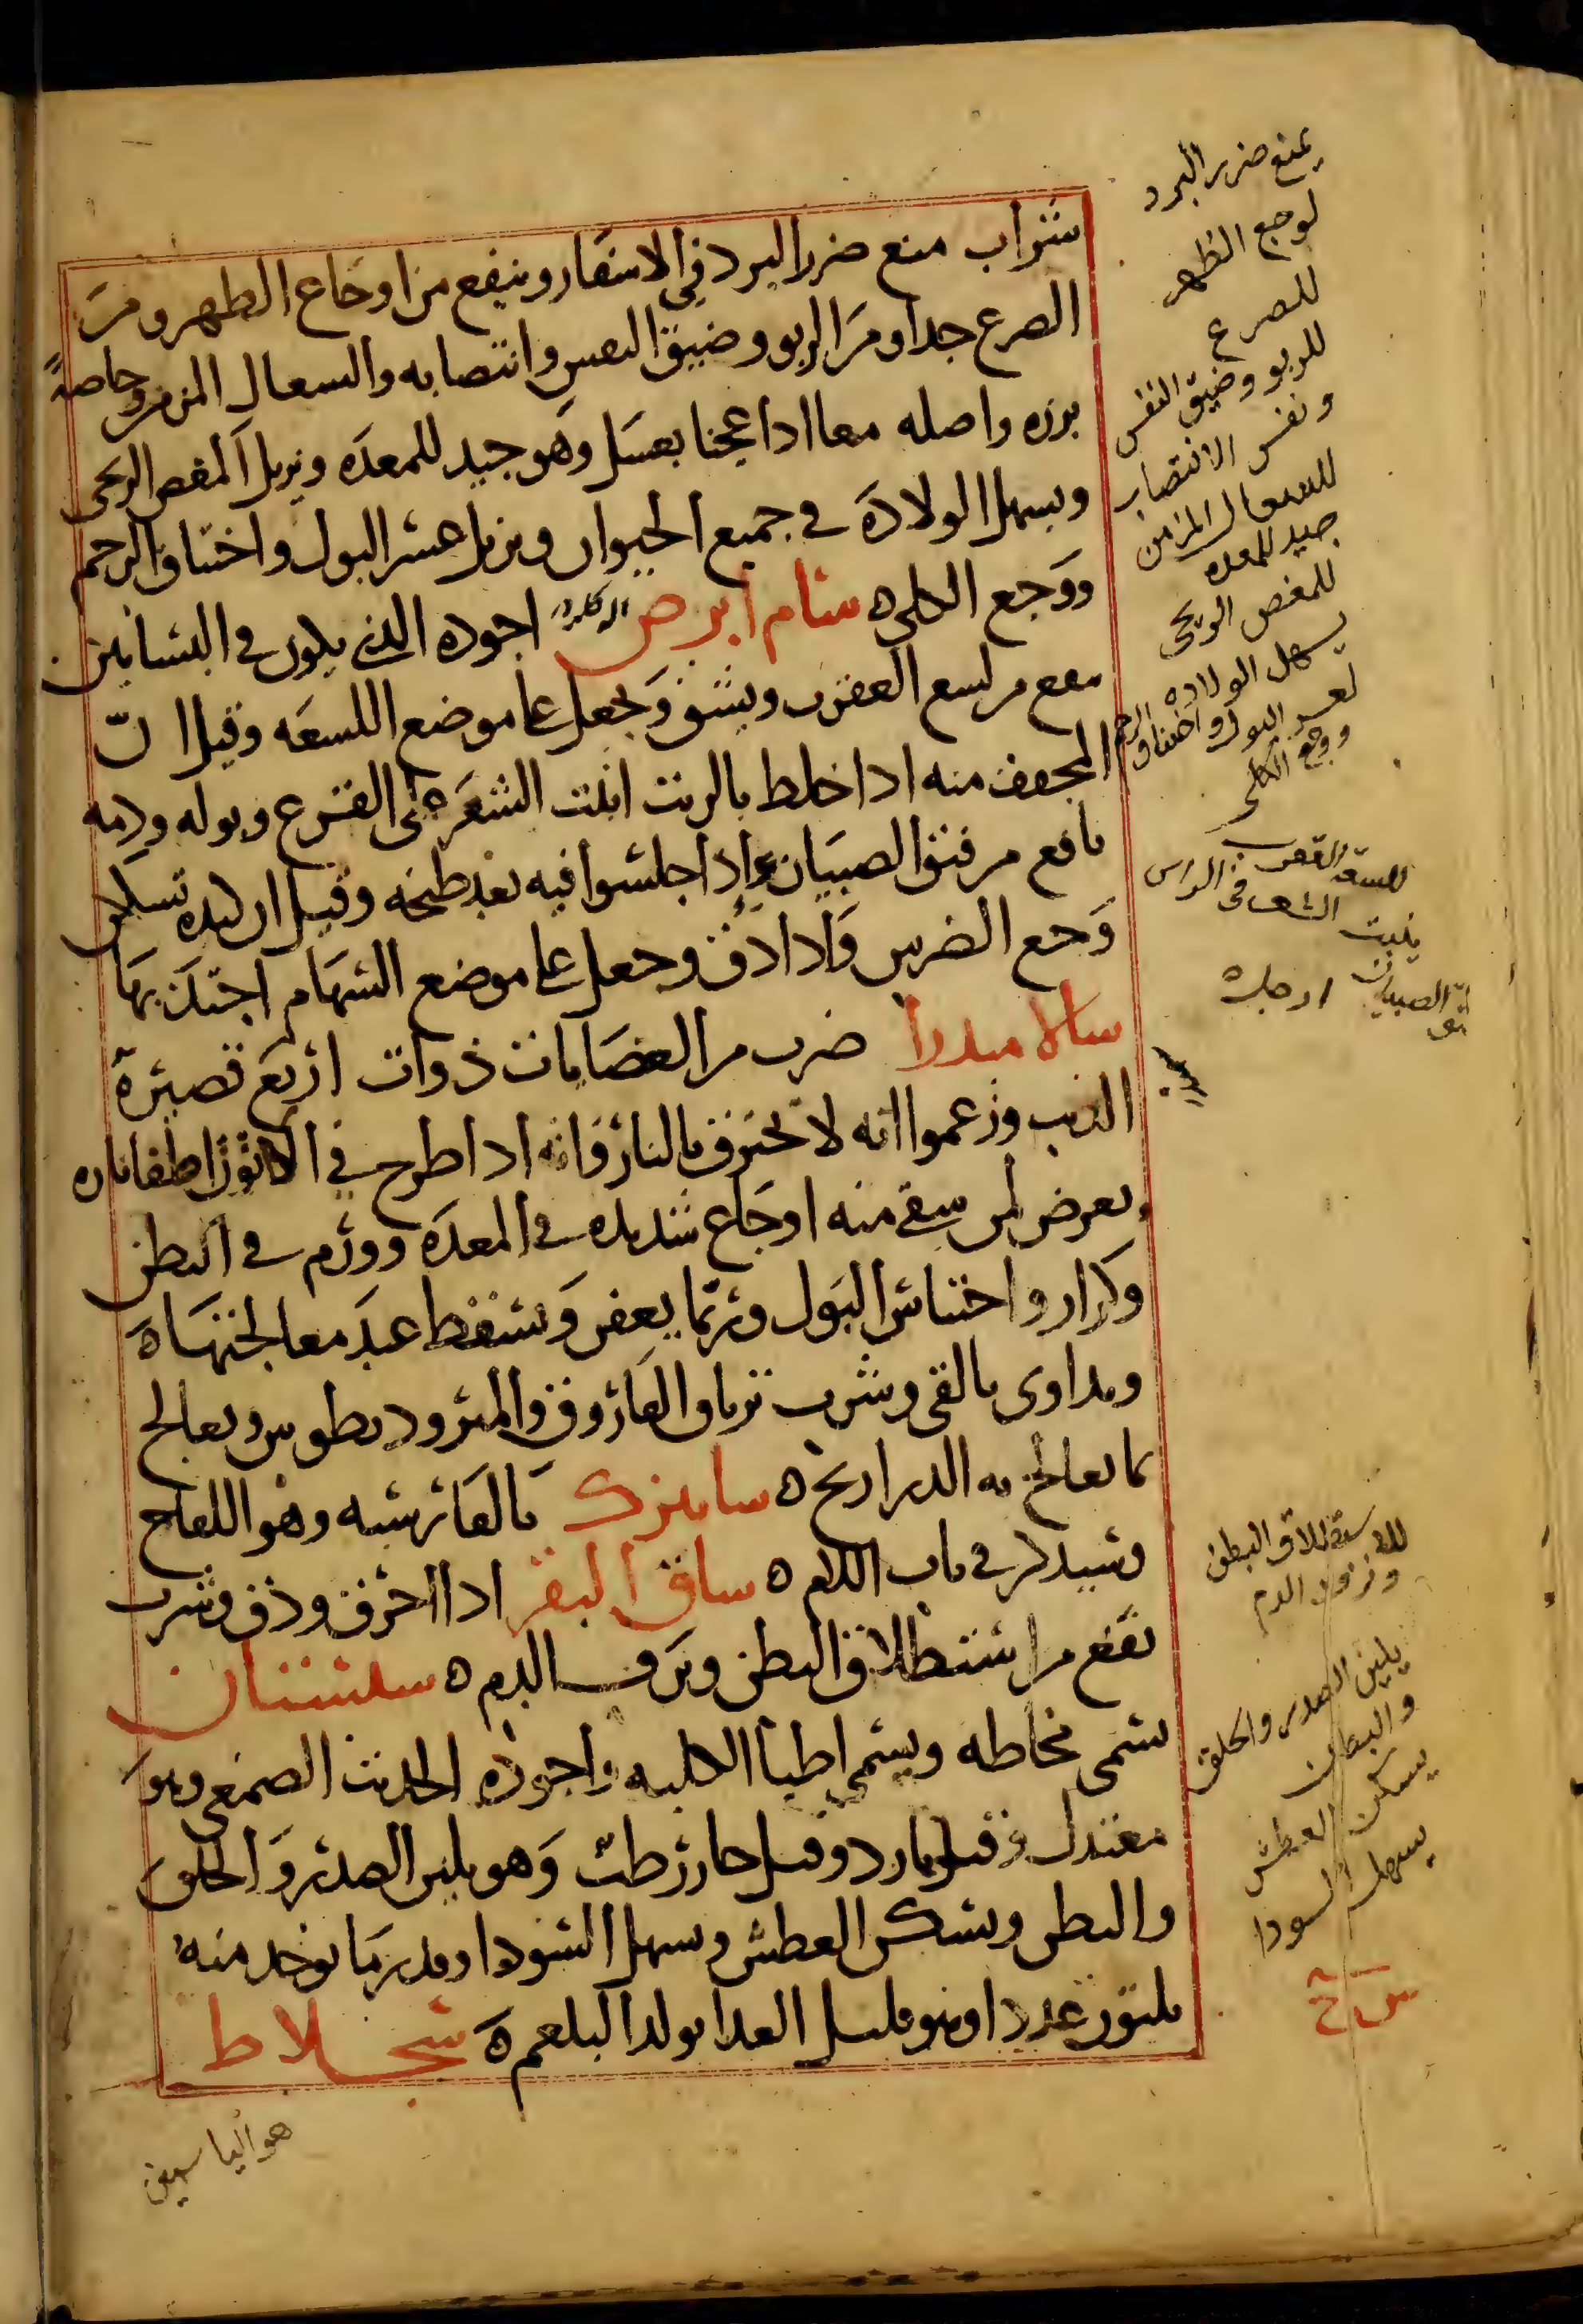 شراب منع ضرر البرد في الاسفار وينفع من اوجاع الظهر ومن
الصرع جدا ومن الربو وضيق النفس وانتصابه والسعال المزمن وخاصةً
بزره واصله معا اذا عجنا بعسل وهو جيد للمعدة ويزيل المغص الريحى
ويسهل الولادة في جميع الحيوان ويزيل عسر البول واختناق الرحم
ووجع الكلى ه سام ابرص اجوده الذي يكون في البساتين
ينفع من لسع العقرب ويشق ويجعل على موضع اللسعه وقيل ان
المجفف منه اذا خلط بالزيت انبت الشعر على القرع وبوله ودمه
نافع من فتق الصبيان اذا جلسوا فيه بعد طبخه وقيل ان كبده تسكن
وجع الضرس واذا دق وجعل على موضع السهام اجتذبها
سالامندرا ضرب من العضايات ذوات اربع قصيرة
الذنب وزعموا انه لا تحترق بالنار فانه اذا طرح في الاتون اطفا ناره
يعرض لمن سقي منه اوجاع شديده في المعدة وورم في البطن
وكزاز واحتباس البول وربما يعفن وتسقط عند معالجتها ه
ويداوى بالقى وشرب ترياق الفاروق والمثروديطوس ويعالج
بما يعالج به الدراريح ه سابيزك بالفارسيه وهو اللفاح
وسيذكر في باب اللام ه ساق البقر اذا احرق ودق وشرب
نفع من استطلاق البطن ونزف الدم ه سبستان
يسمى مخاطه ويسمى اطبا الكلبه واجوده الحديث الصمغي وهو
معتدل وقيل بارد وقيل حار رطب وهو يلين الصدر والحلق
والبطن ويسكن العطش ويسهل السودا وقدر ما يوخذ منه
ثلثون عددا وهو قليل الغذا يولد البلغم ه سجلاط
هو الياسمين
يمنع ضرر البرد
لوجع الظهر
للصرع
للربو وضيق النفس
ونفس الانتصاب
للسعال المزمن
جيد للمعده
للمغص الريحى
يسهل الولاده
لعسر البول واختناق الرحم
ووجع الكلى
للسعة العقرب
ينبت الشعر فى الراس
الصبيان
للاستطلاق البطن
ونزف الدم
يلين الصدر والحلق
والبطن
يسكن العطش
يسهل السودا
س ج